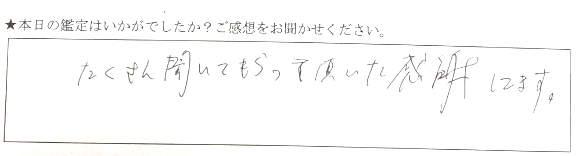 ★本日の鑑定はいかがでしたか？ご感想をお聞かせください。
たくさん聞いてもらって頂いた感謝してます。